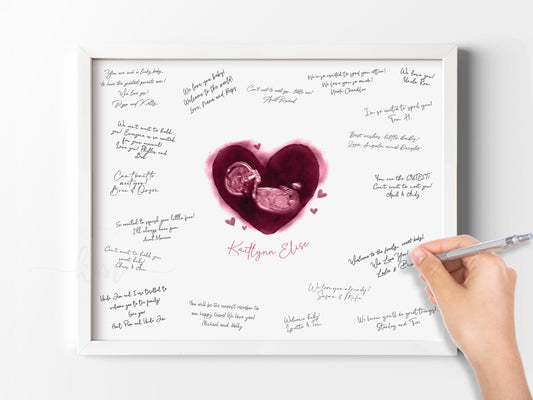 You are such a lucky baby
to have the greatest parents ever!
We love you!
Ryan and Kelly
We love you baby!
Welcome to the world!
Love, Nana and Pops
Can't wait to meet you, little one!
Aunt Rachel
We're so excited to spoil you, little one!
We love you so much!
Uncle Chandler
We love you!
Uncle Ron
I'm so excited to spoil you!
Tom H.
Best wishes, little baby!
You are the CUTEST!
Can't wait to meet you!
April & Andy
We can't wait to hold
you! Everyone is so excited
for your arrival!
Love you! Phyllis and
Bob
Can't wait to
meet you!
So excited to squish your little face!
I'll always love you
Aunt Monica
Can't wait to hold you
sweet baby
Chris & Ann
Kaitlynn Elise
Welcome to the family, sweet baby!
We Love You!
Uncle Jim and I are thrilled to
welcome you to the family!
Love you!
Aunt Pam and Uncle Jim
You will be the newest member to
our happy tribe! We love you!
Michael and Holly
We love you already!
Susan & Mike
Welcome baby!
We know you'll do great things!
Stanley and Fam